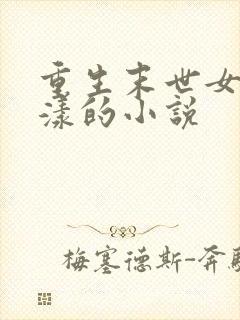 重生末世女
漾的小説
梅塞德斯-奔馳